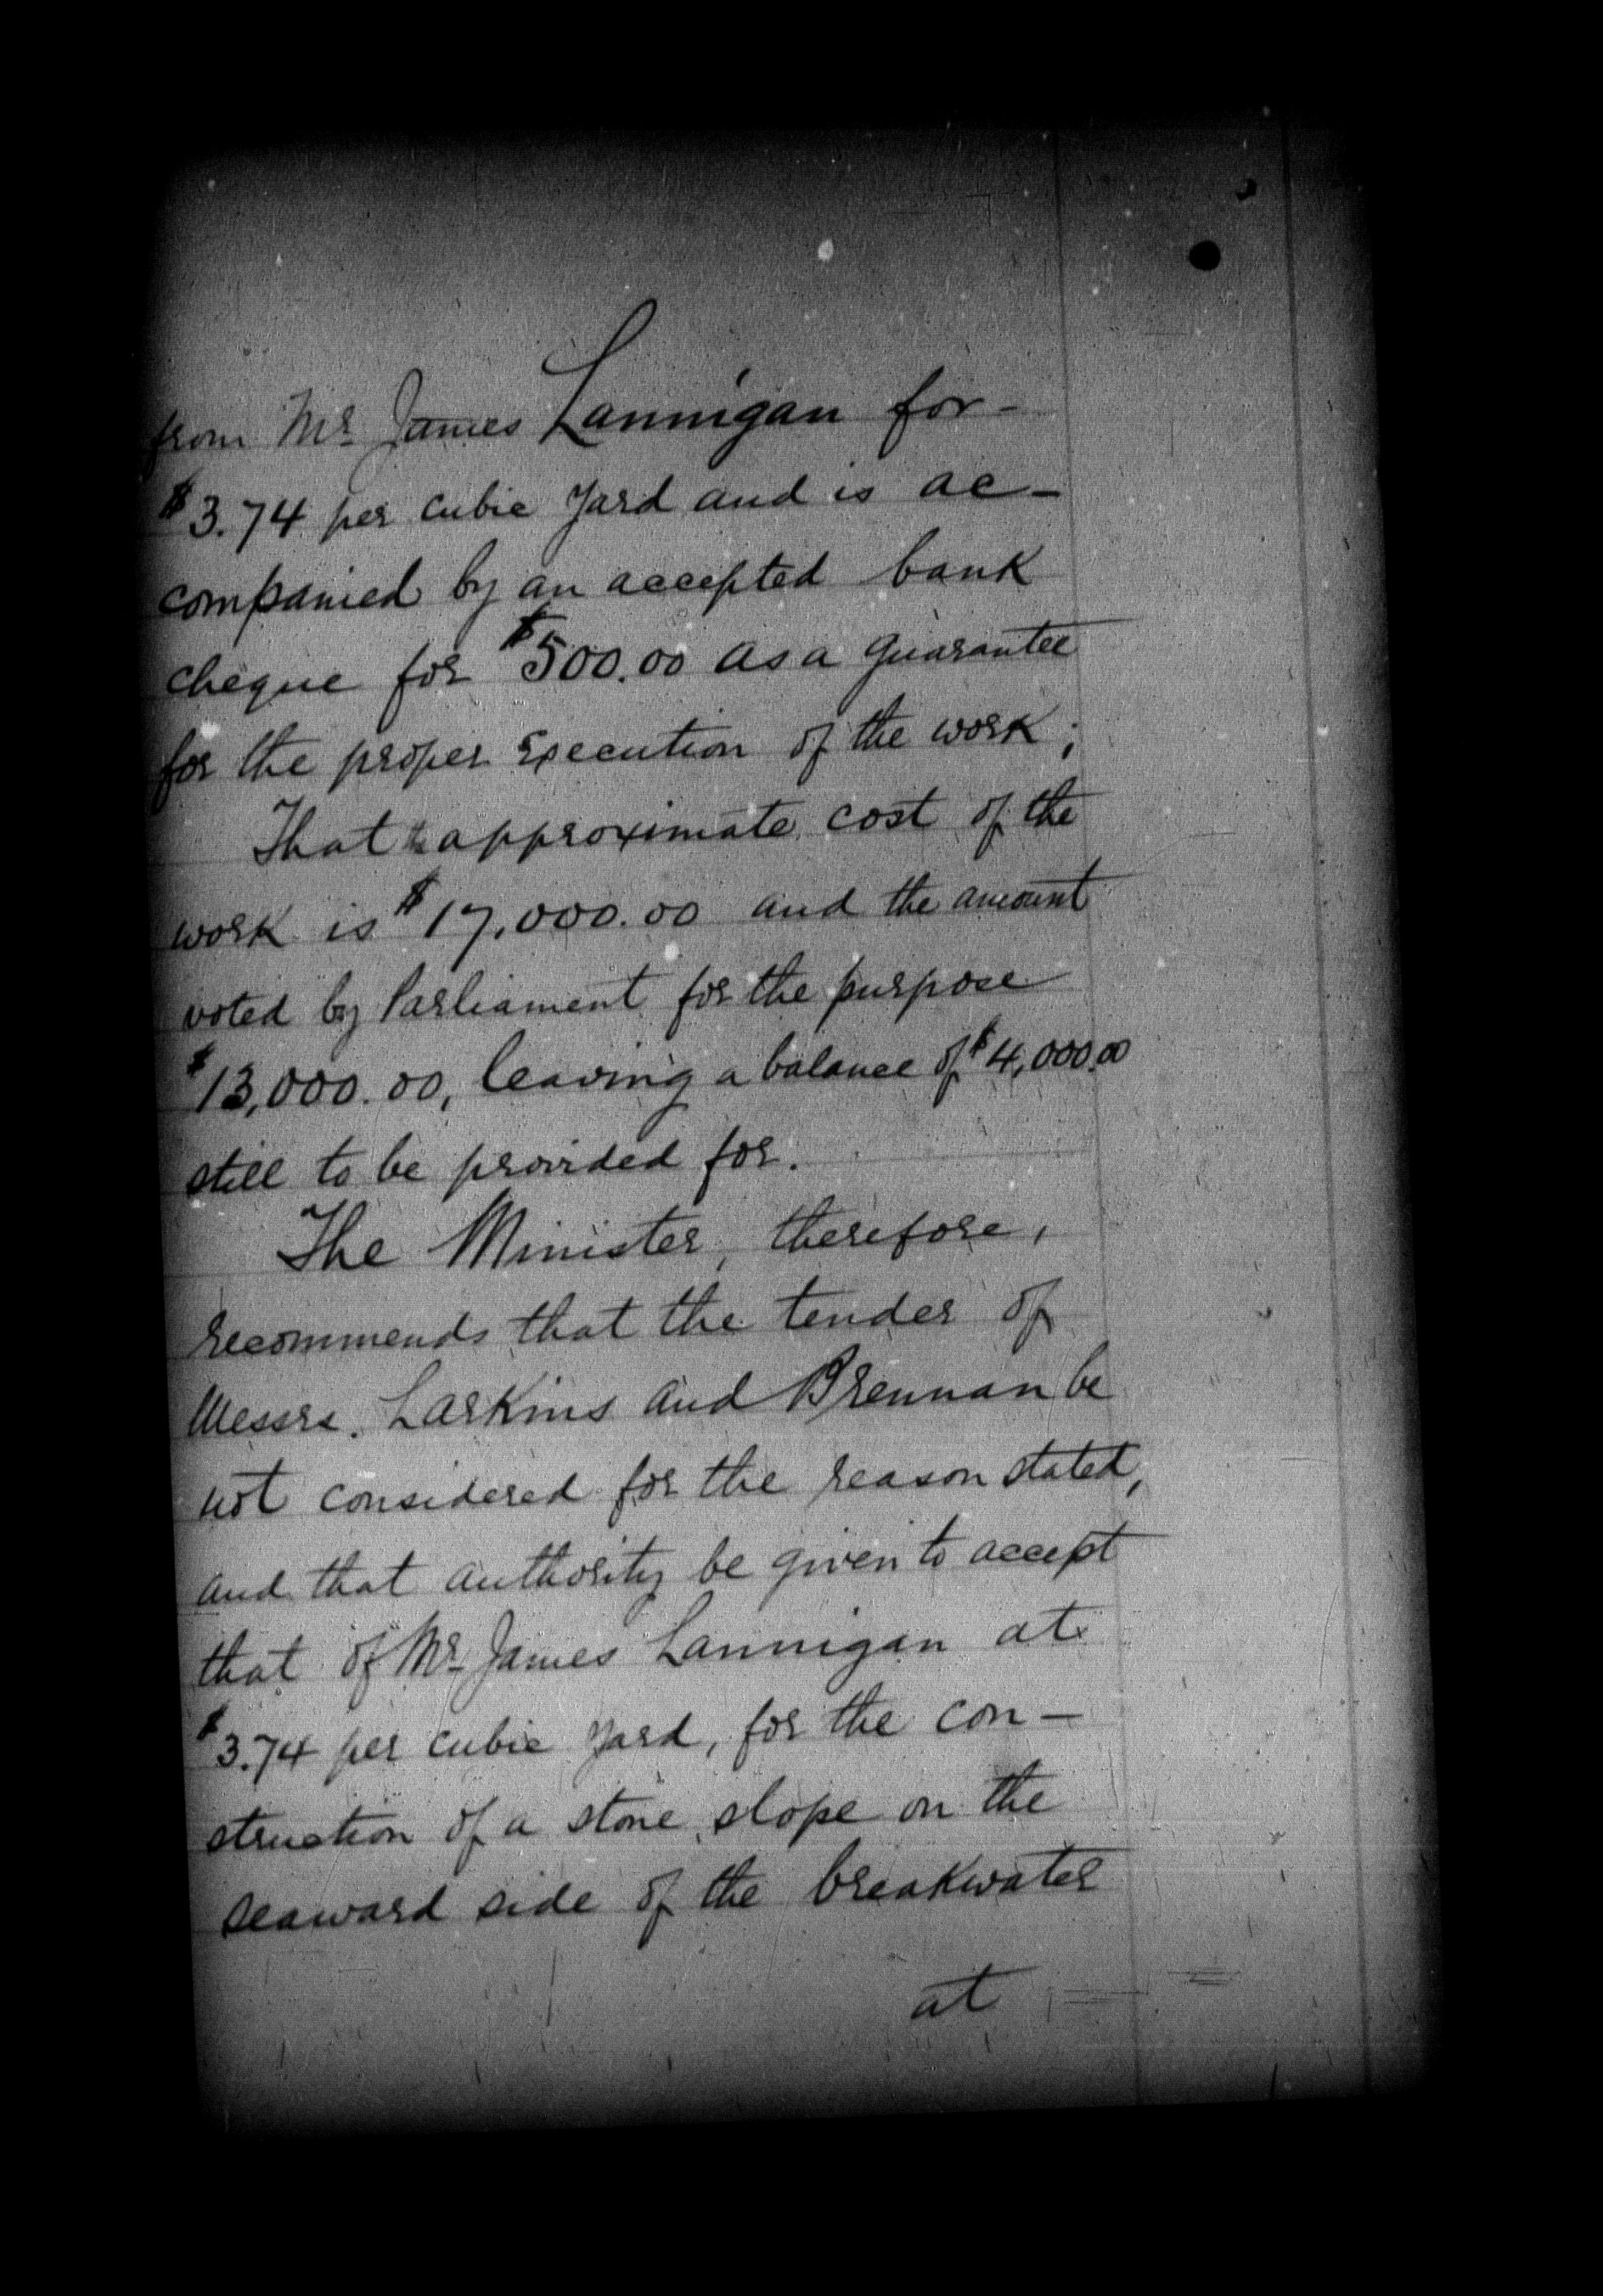 from Mr James Lannigan for-
$3.74 per cubic yard and is ac-
companied by an accepted bank
cheque for $500.00 as a guarantee
for the proper execution of the work;
That the approximate cost of the
work is $17,000.00 and the amount
voted by Parliament for the purpose
$13,000.00, leaving a balance of $4,000.00
still to be provided for.
The Minister, therefore,
recommends that the tender of
Messrs. Larkins and Brennan be
not considered for the reason stated,
and that authority be given to accept
that of Mr James Lannigan at
$3.74 per cubic yard, for the con-
struction of a stone slope on the
seaward side of the breakwater
at